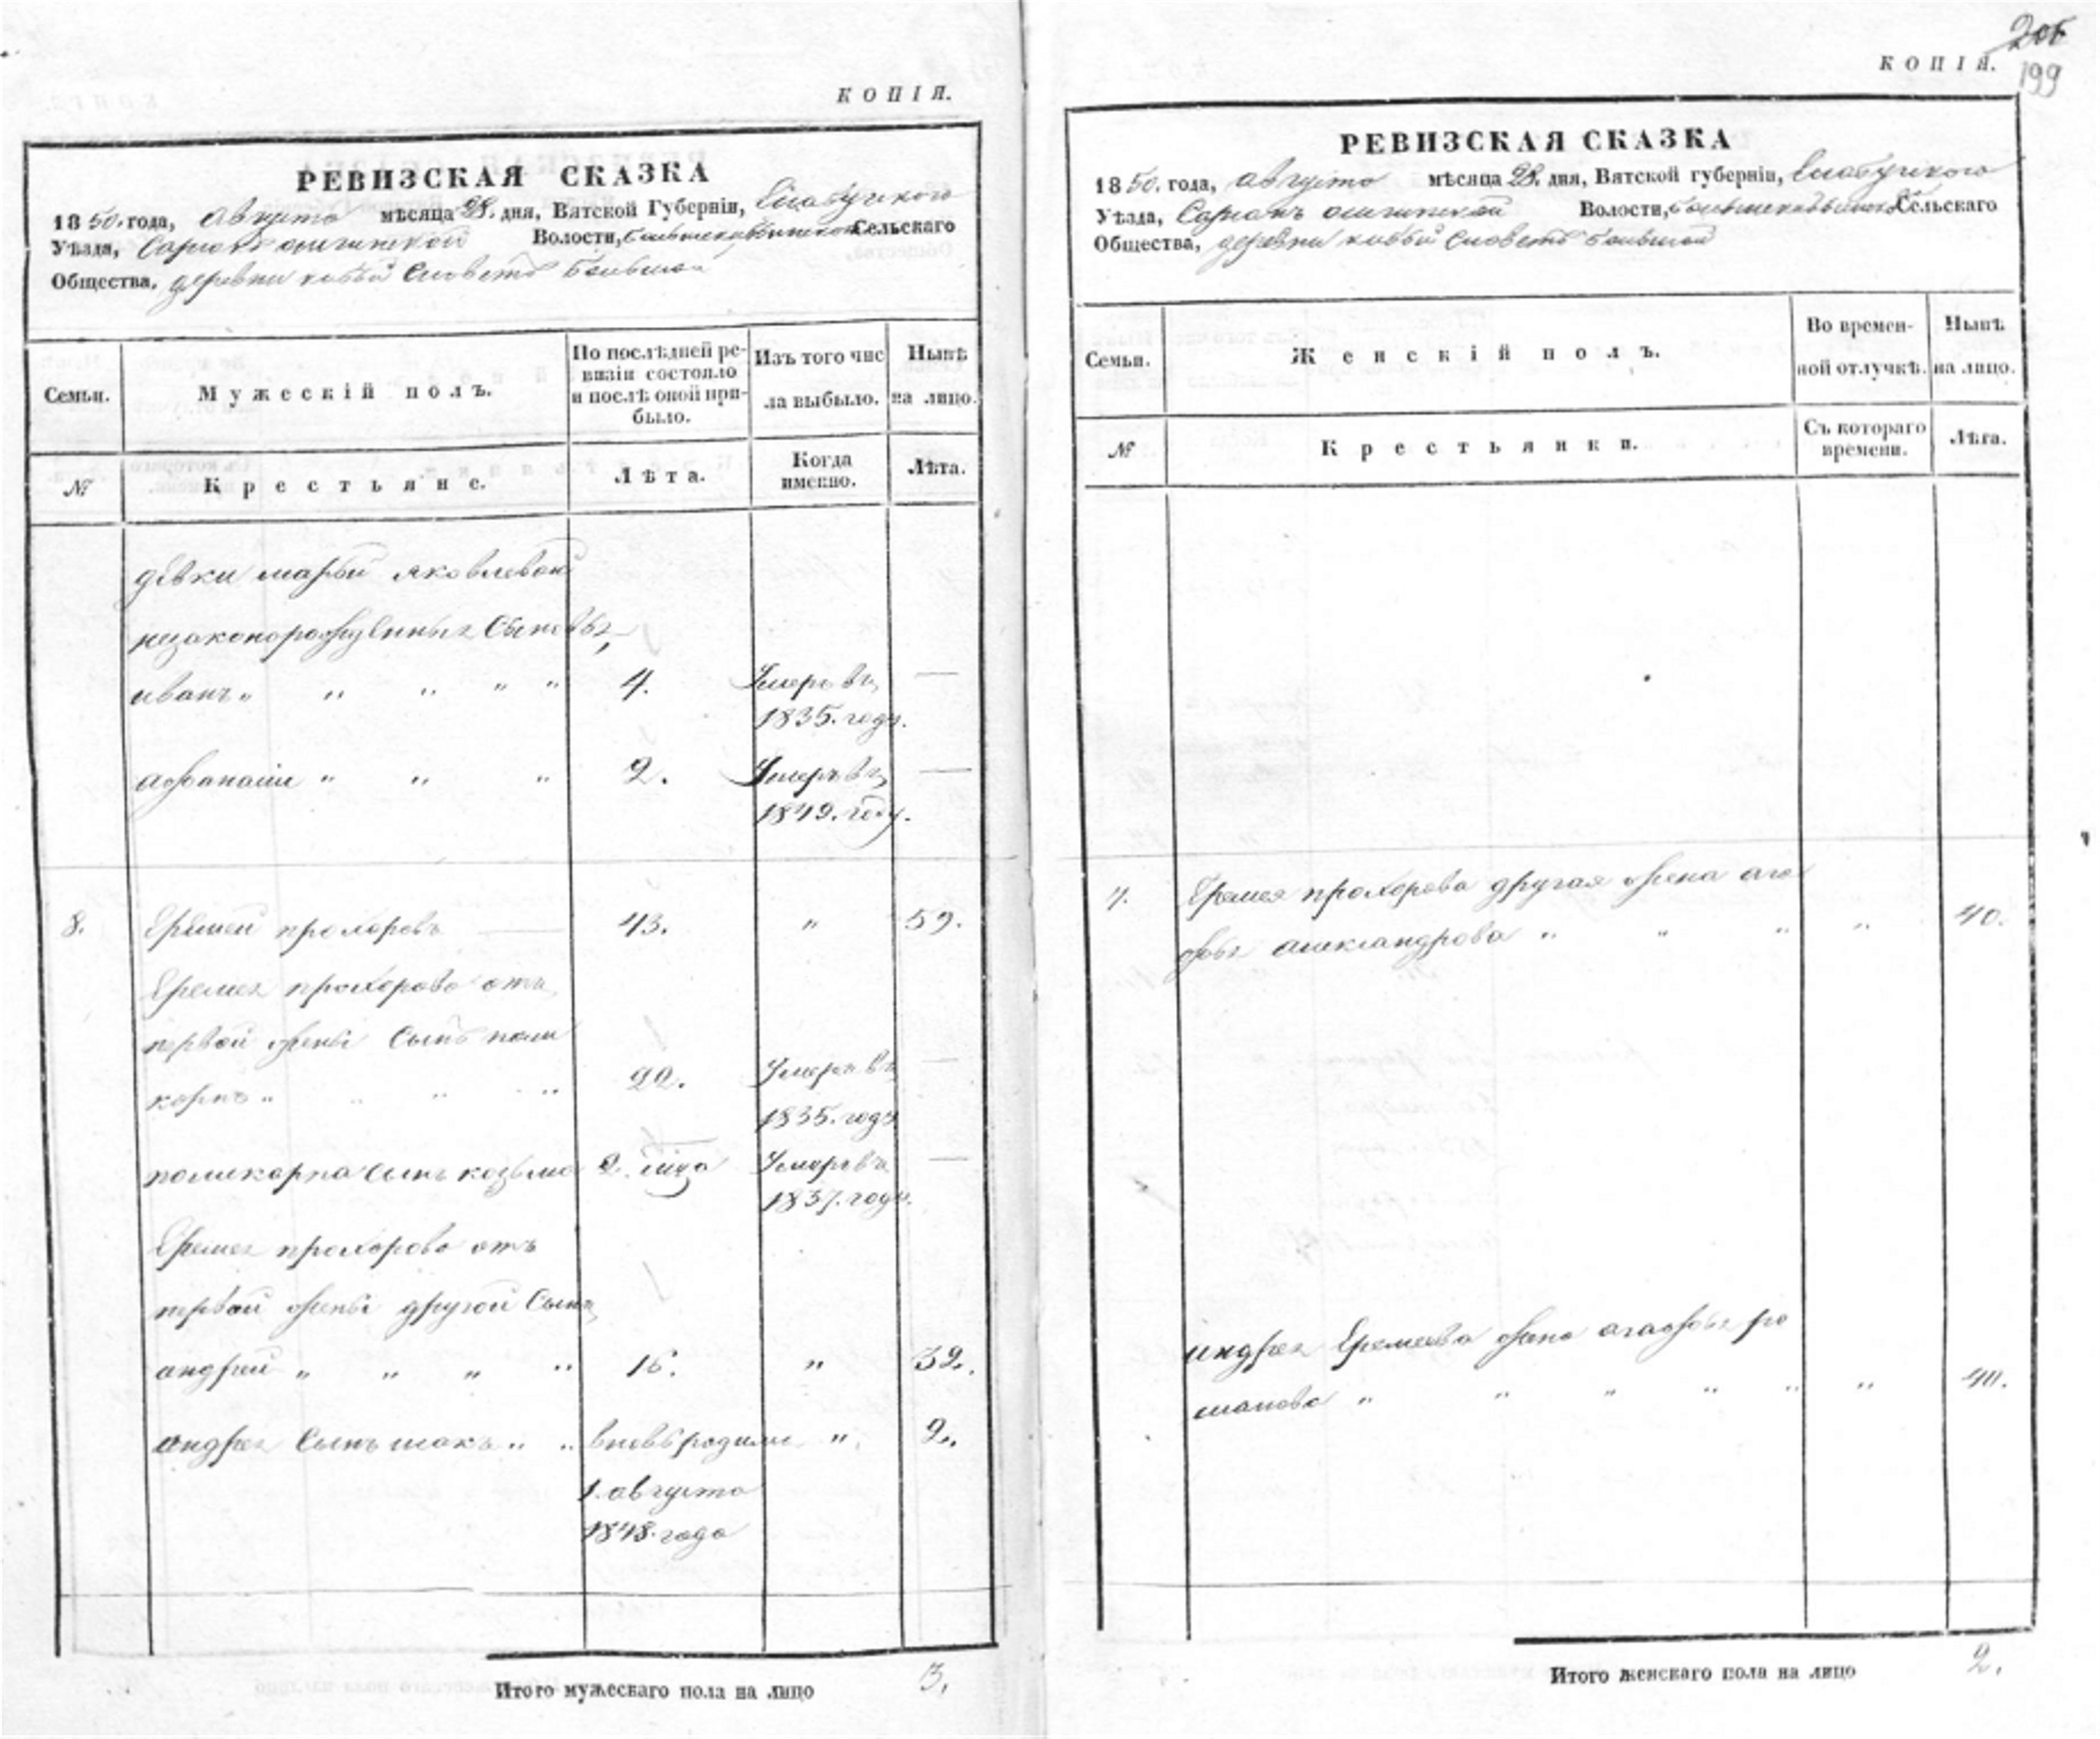 КОПІЯ.
РЕВИЗСКАЯ СКАЗКА
1850. года, августа мѣсяца 28. дня, Вятской Губерніи, Елабужского
Уѣзда, Волости, Сельскаго
Общества, деревни
Семьи.
Мужескій полъ.
По послѣдней ре-
визіи состояло
и послѣ оной при-
было.
Изъ того чис
ла выбыло.
Нынѣ
на лицо.
№
Крестьяне.
Лѣта.
Когда
именно.
Лѣта.
дѣвки марьи яковлевой
незаконорожденныхъ сыновья
иванъ " " " " " 4. Умеръ въ —
1835. году.
афанасій " " " 2. Умеръ въ —
1849. году.
8. Еремей прохоровъ — 43. " 59.
Еремея прохорова отъ
первой жены сынъ поли
карпъ " " " " 22. Умеръ въ —
1835. году
поликарпа сынъ козьма 2. Умеръ въ —
1837. году.
Еремея прохорова отъ
первой жены другой сынъ
андрей " " " " 16. " 32.
андрея сынъ " " вновь " 2.
1. августа
1848. года
Итого мужескаго пола на лицо 3.
205
199
КОПІЯ.
РЕВИЗСКАЯ СКАЗКА
1850. года, августа мѣсяца 28. дня, Вятской губерніи, Елабужского
Уѣзда, Волости, Сельскаго
Общества, деревни
Семьи.
Женскій полъ.
Во времен-
ной отлучкѣ.
Нынѣ
на лицо.
№
Крестьянки.
Съ котораго
времени.
Лѣта.
Еремея прохорова другая жена ага
фья александрова " " " " 40.
андрея Еремеева жена агафья ро
манова " " " " " " 40.
Итого женскаго пола на лицо 2.